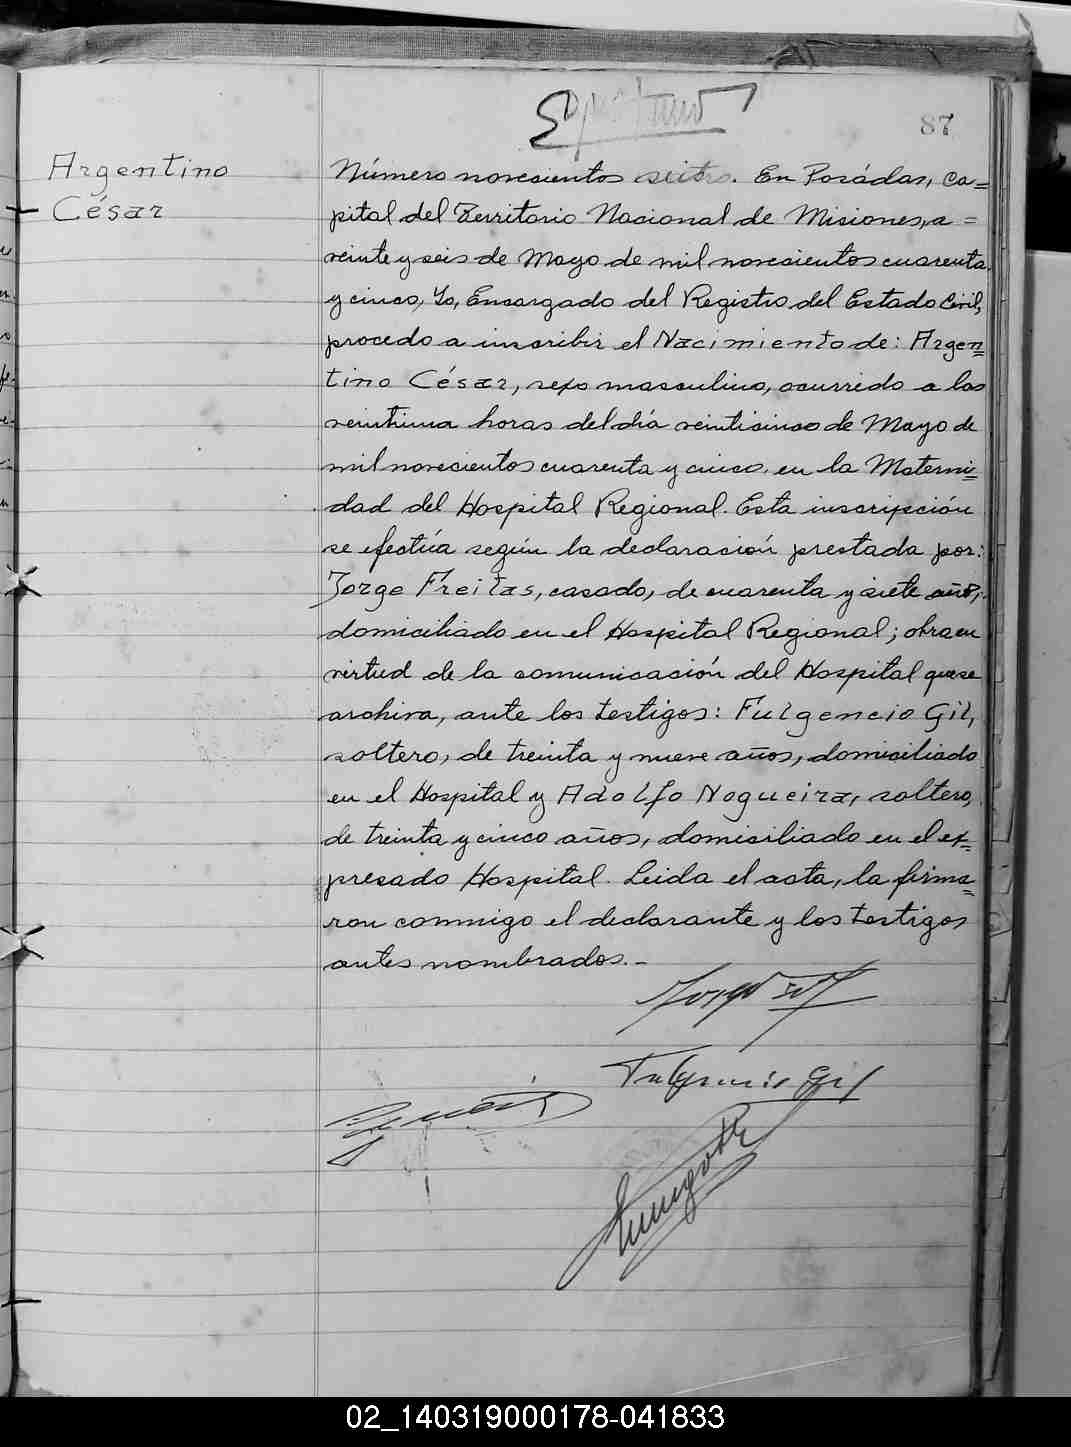 87
Argentino
César
Número novecientos. En Posadas, ca=
pital del Territorio Nacional de Misiones, a =
veinte y seis de Mayo de mil novecientos cuarenta
y cinco, Yo, Encargado del Registro del Estado Civil,
procedo a inscribir el Nacimiento de: Argen=
tino César, sexo masculino, ocurrido a las
veintiuna horas del día veinticinco de Mayo de
mil novecientos cuarenta y cinco, en la Materni=
dad del Hospital Regional. Esta inscripción
se efectúa según la declaración prestada por:
Jorge Freitas, casado, de cuarenta y siete años,
domiciliado en el Hospital Regional; obra en
virtud de la comunicación del Hospital que se
archiva, ante los testigos: Fulgencio Gil,
soltero, de treinta y nueve años, domiciliado
en el Hospital y Adolfo Nogueira, soltero,
de treinta y cinco años, domiciliado en el ex=
presado Hospital. Leida el acta, la firma=
ron conmigo el declarante y los testigos
antes nombrados.-
Fulgencio Gil
02_140319000178-041833